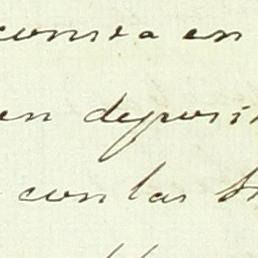 consta en
en deposi
con las